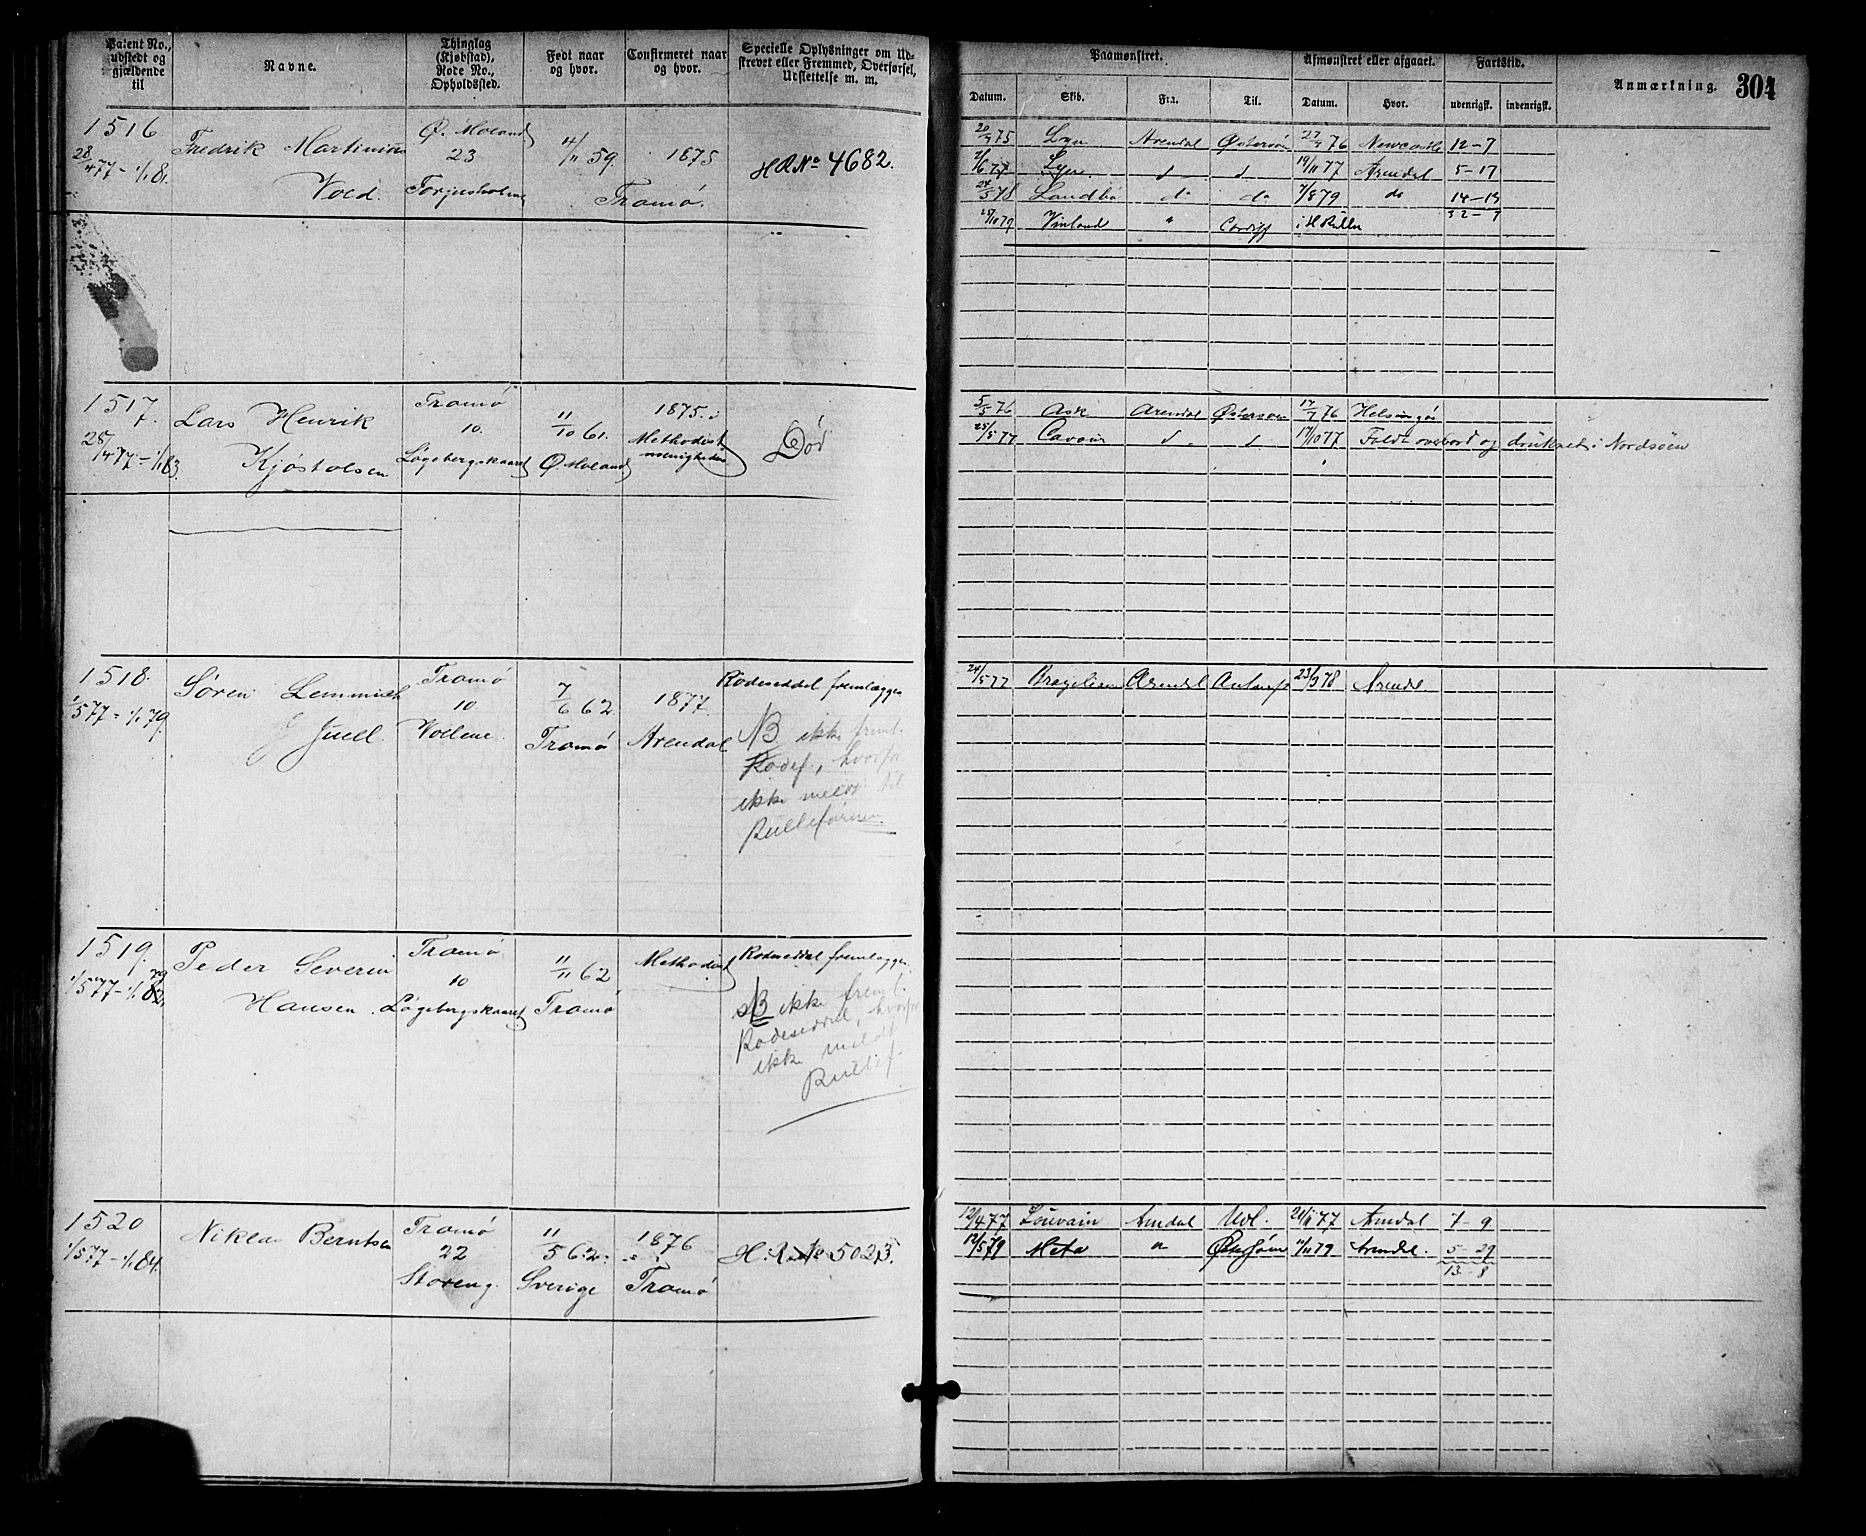 Patent No., udstedt og gjældende til
Navne.
Thinglag (Kjøbstad), Rode No., Opholdssted.
Født naar og hvor.
Confirmeret naar og hvor.
Specielle Oplysninger om Udskrevet eller Fremmed, Overførsel, Udslettelse m. m.
Paamønstret.
Afmønstret eller afgaaet.
Fartstid.
Anmærkning.
304
Datum.
Skib.
Fra.
Til.
Datum.
Hvor.
udenrigsk.
indenrigsk.
1516 Fredrik Martinius Ø. Moland 4/11 59. 1875 HR No 4682.
28/4 77 - 1/1 81. Vold 23 Tromø.
Torjusholmen
20/4 75 Arendal Østersøen 27/7 76 Newcastle 12-7
2/6 77 19/11 77 Arendal 5-17
24/5 78 Sandbo do do 7/8 79 do 14-13
32-7
Vinland " Cardiff i H Rullen
1517. Lars Henrik Tromø 11/10 61. 1875 i Død
28/4 77 - 1/1 83. Kjøstolsen 10. Ø Moland Methodist menigheden
Løgebergskaaret
5/5 76 Ask Arendal Østersøen 17/7 76 Helsingør
25/5 77 Cavour 17/10 77 Faldt overbord og druknet i Nordsøen
1518. Søren Lemmich Tromø 7/6 62 1877. Rodeseddel fremlægges
1/5 77 - 1/1 79. Juell 10 Tromø Arendal NB ikke freml.
Vollene Rodes., hvorfor
ikke meldt til
Rulleføreren
24/5 77 Arendal Antwerp 23/3 78 Arendal
1519. Peder Severin Tromø 11/11 62 Methodist Rodeseddel fremlægges
1/5 77 - 1/1 82. 79 Hansen. 10 Tromø NB ikke freml.
Løgebergskaaret Rodeseddel, hvorfor
ikke meldt
Rullef.
1520 Niklas Berntsen Tromø 11/5 62. 1876 H. R. No 5023.
1/5 77 - 1/1 84. 22 Sverige Tromø
Storeng.
12/4 77 Louvain Arendal Udl. 21/11 77 Arendal 7-9
12/5 79 Meta " Østersøen 11/11 79 Arendal. 5-29
13-8